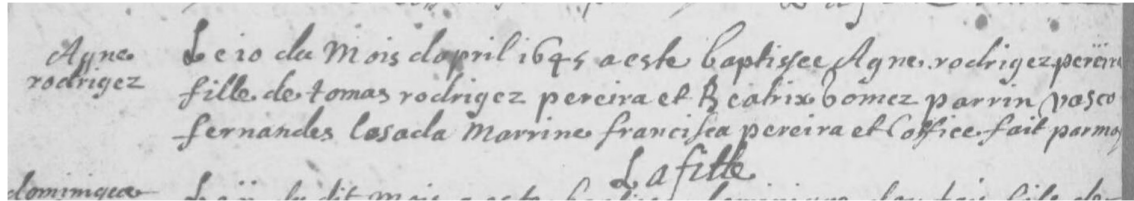 Agne
rodrigez
Le 10 du Mois dapril 1645 a este baptissee Agne rodrigez pereire
fille de tomas rodrigez pereira et Beatrix gomez parrin vasco
fernandes Losada Marrine francisca pereira et Loffice fait par moy
Lafitte
dominique